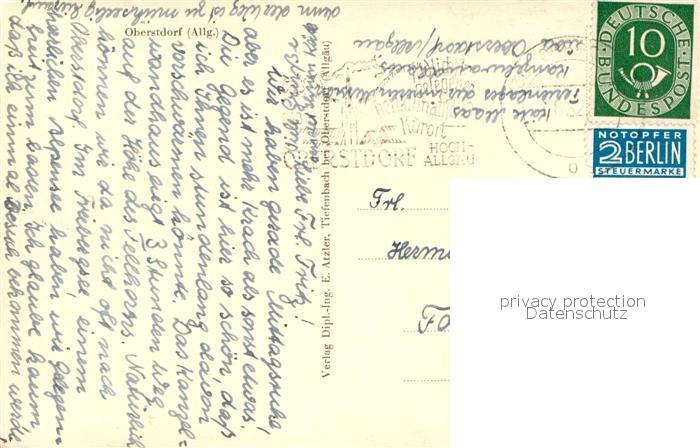 Oberstdorf (Allg.)
Liebe Frl. Fritz!
Wir haben gerade Mittagsruhe,
aber es ist mehr Krach als sonst etwas.
Die Gegend ist hier so schön, daß
ich Ihnen stundenlang davon
vorschwärmen könnte. Das Kanzel-
wandhaus liegt 3 Stunden Weg
auf der Höhe des Fellhorns. Natürlich
können wir da nicht oft nach
Oberstdorf. Im Freibergsee, einem
herrlichen Alpensee haben wir Gelegen-
heit zum Baden. Ich glaube kaum
daß ich einmal Besuch bekommen werde,
denn der Weg ist zu mühselig
Verlag Dipl.-Ing. E. Atzler, Tiefenbach bei Oberstdorf (Allgäu)
Maas
Ferienlager
Kanzelwandhaus
Oberstdorf/Allgäu
Kurort
OBERSTDORF
HOCH-
ALLGÄU
DEUTSCHE
10
BUNDESPOST
NOTOPFER
2 BERLIN
STEUERMARKE
Frl.
privacy protection
Datenschutz